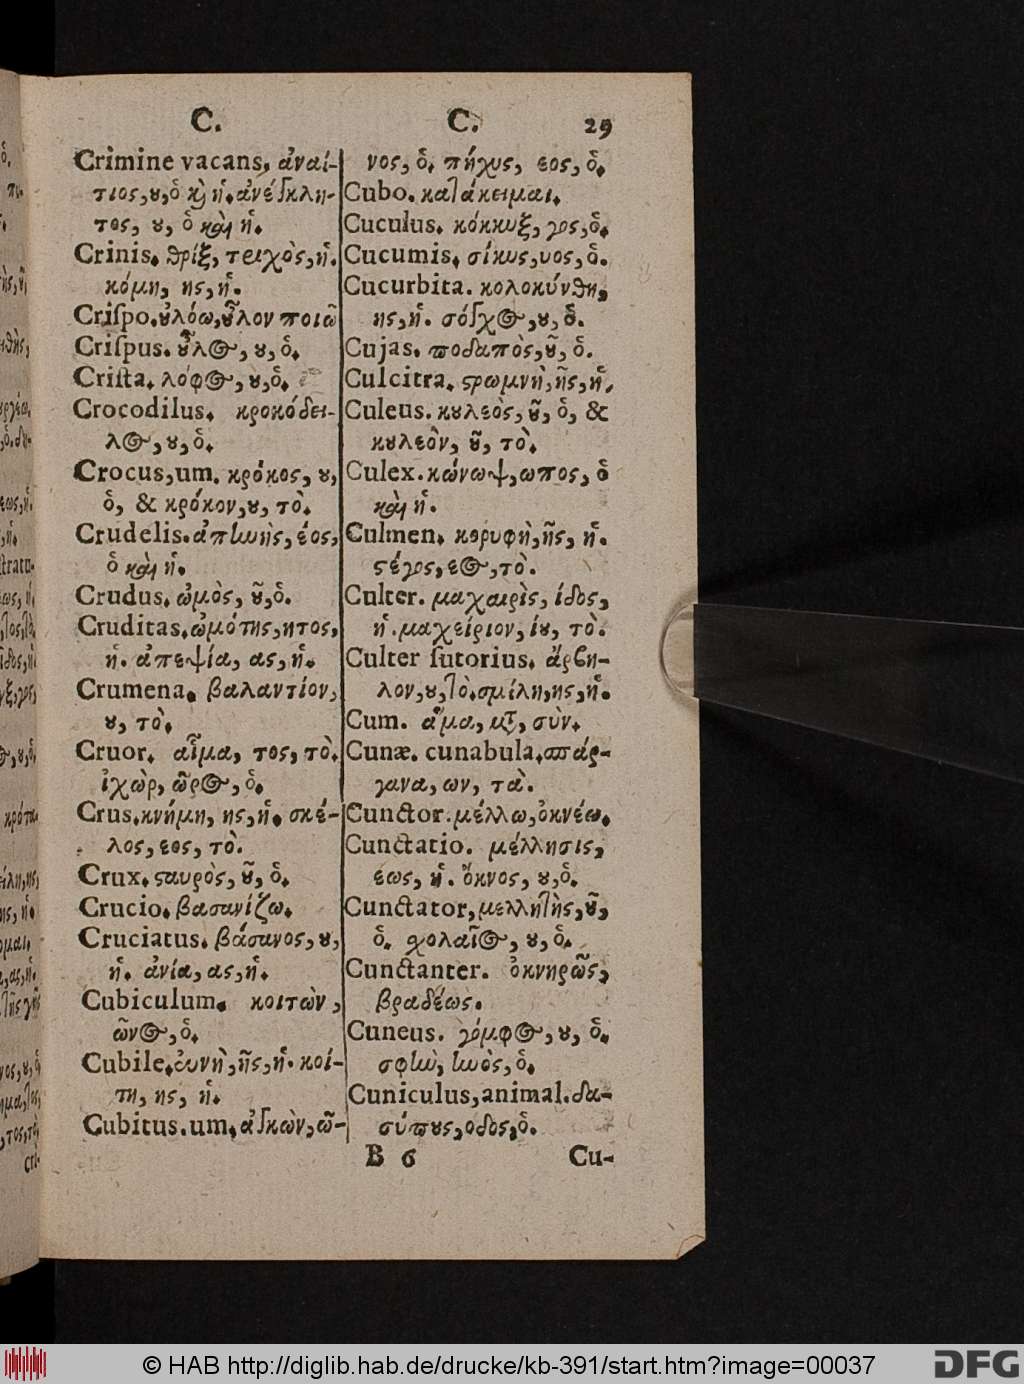 C. C. 29
Crimine vacans. ἀναί-
τιος, ȣ, ὁ κỳ ἡ. ἀνέγκλη-
τος, ȣ, ὁ καὶ ἡ.
Crinis. θρίξ, τριχὸς, ἡ.
κόμη, ης, ἡ.
Criſpo. ȣ̓λόω, ȣ̓͂λον ποιῶ
Criſpus. ȣ̓͂λος, ȣ, ὁ.
Criſta. λόφος, ȣ, ὁ.
Crocodilus. κροκόδει-
λος, ȣ, ὁ.
Crocus, um. κρόκος, ȣ,
ὁ, & κρόκον, ȣ, τὸ.
Crudelis. ἀπηνὴς, έος,
ὁ καὶ ἡ.
Crudus. ὠμὸς, ȣ͂, ὁ.
Cruditas. ὠμότης, ητος,
ἡ. ἀπεψία, ας, ἡ.
Crumena. βαλαντίον,
ȣ, τὸ.
Cruor. αἷμα, τος, τὸ.
ἰχὼρ, ῶρος, ὁ.
Crus. κνήμη, ης, ἡ. σκέ-
λος, εος, τὸ.
Crux. ϛαυρὸς, ȣ͂, ὁ.
Crucio. βασανίζω.
Cruciatus. βάσανος, ȣ,
ἡ. ἀνία, ας, ἡ.
Cubiculum. κοιτὼν,
ῶνος, ὁ.
Cubile. εὐνὴ, ῆς, ἡ. κοί-
τη, ης, ἡ.
Cubitus. um. ἀγκὼν, ῶ-
νος, ὁ. πῆχυς, εος, ὁ.
Cubo. κατάκειμαι.
Cuculus. κόκκυξ, γος, ὁ.
Cucumis. σίκυς, υος, ὁ.
Cucurbita. κολοκύνθη,
ης, ἡ. σόγχος, ȣ, ὁ.
Cujas. ποδαπὸς, ȣ͂, ὁ.
Culcitra. ϛρωμνὴ, ῆς, ἡ.
Culeus. κȣλεὸς, ȣ͂, ὁ, &
κȣλεὸν, ȣ͂, τὸ.
Culex. κώνωψ, ωπος, ὁ
καὶ ἡ.
Culmen. κορυφὴ, ῆς, ἡ.
ϛέγος, εος, τὸ.
Culter. μαχαιρὶς, ίδος,
ἡ. μαχείριον, ίȣ, τὸ.
Culter ſutorius. ἄρβη-
λον, ȣ, τὸ. σμίλη, ης, ἡ.
Cum. ἅμα, μξ, σὺν.
Cunæ. cunabula. σπάρ-
γανα, ων, τὰ.
Cunctor. μέλλω, ὀκνέω.
Cunctatio. μέλλησις,
εως, ἡ. ὄκνος, ȣ, ὁ.
Cunctator, μελλητὴς, ȣ͂,
ὁ. χολαῖος, ȣ, ὁ.
Cunctanter. ὀκνηρῶς,
βραδέως.
Cuneus. γόμφος, ȣ, ὁ.
σφὴν, ηνὸς, ὁ.
Cuniculus, animal. δα-
σύπȣς, οδος, ὁ.
B 6 Cu-
© HAB http://diglib.hab.de/drucke/kb-391/start.htm?image=00037
DFG